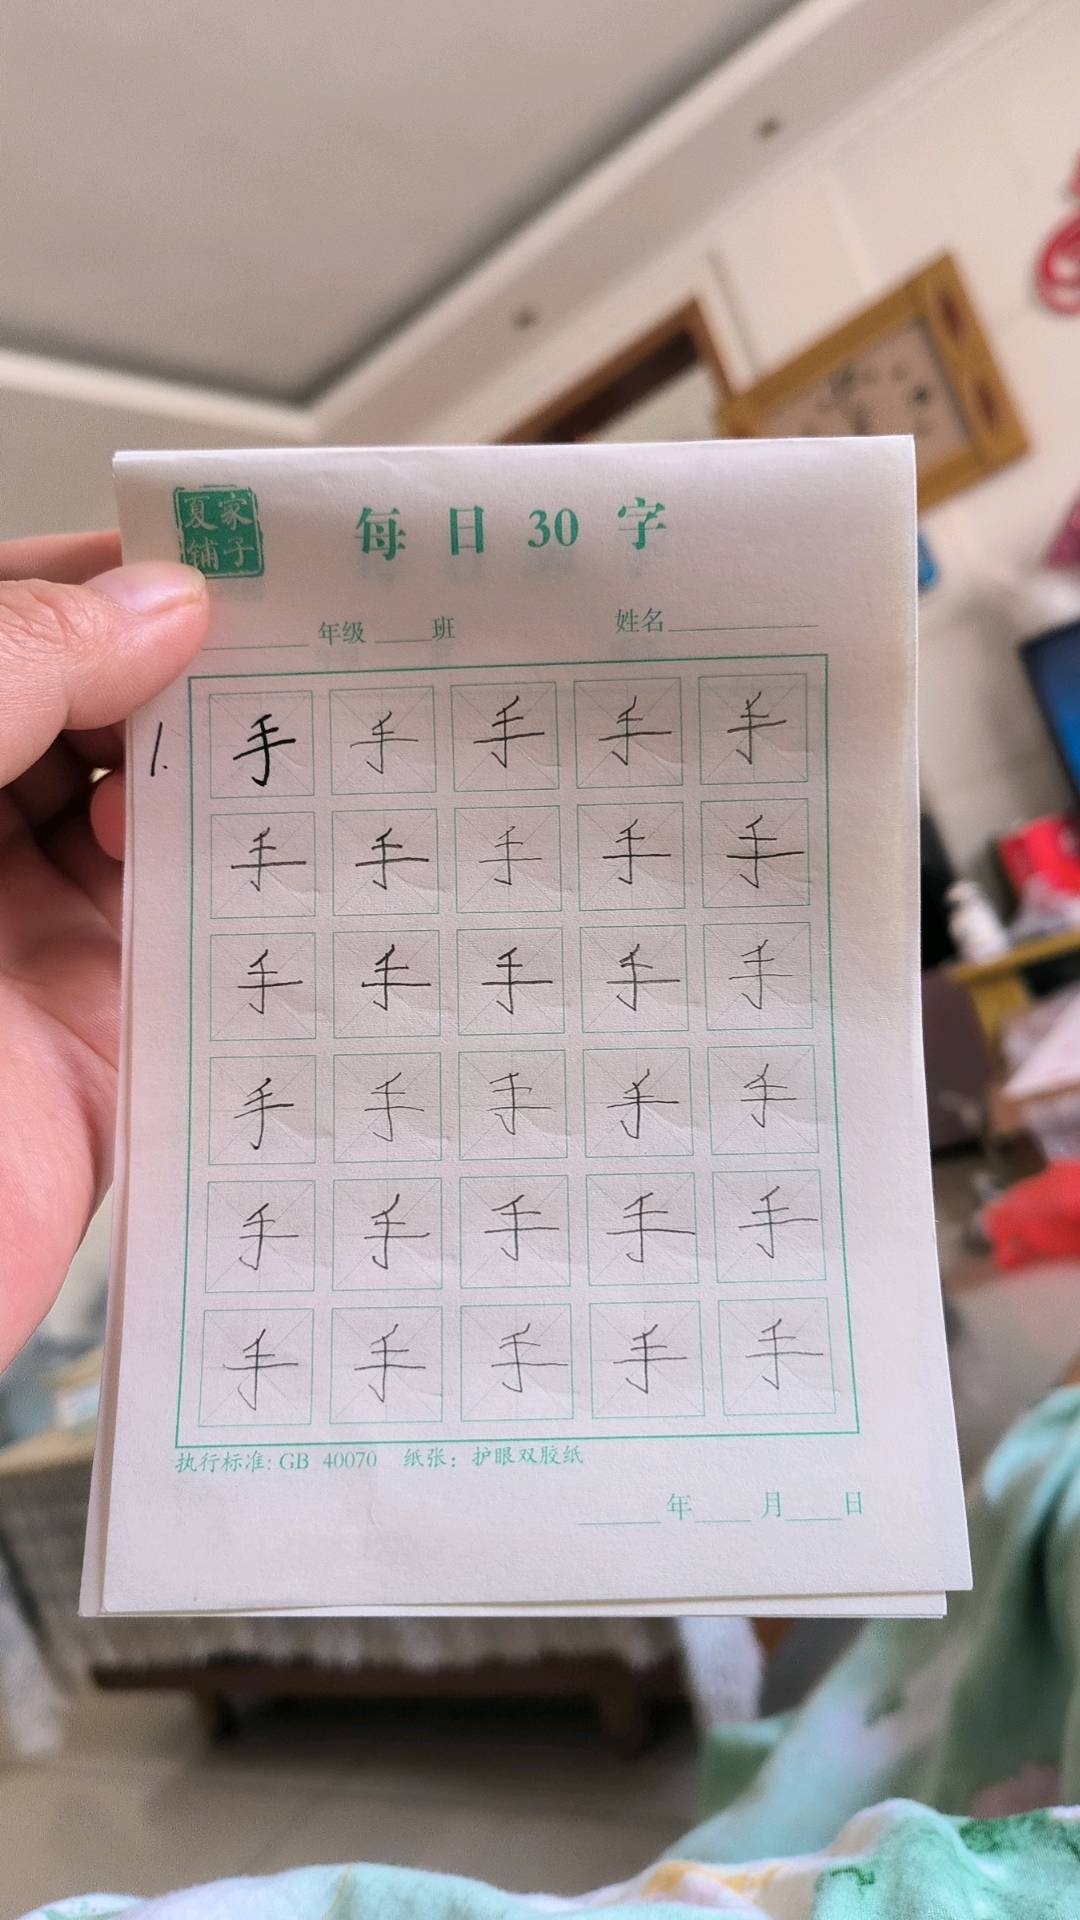 夏家
铺子
每日30字
年级 班 姓名
1. 手 手 手 手 手
手 手 手 手 手
手 手 手 手 手
手 手 手 手 手
手 手 手 手 手
手 手 手 手 手
执行标准: GB 40070 纸张: 护眼双胶纸
年 月 日